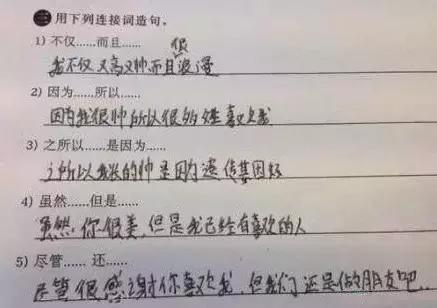 三 用下列连接词造句。
1) 不仅……而且……
我不仅又高又帅而且很浪漫
2) 因为……所以……
因为我很帅所以很多姓喜欢我
3) 之所以……是因为……
之所以我长的帅是因为遗传基因好
4) 虽然……但是……
虽然你很美,但是我已经有喜欢的人
5) 尽管…… 还……
尽管很感谢你喜欢我,但我们还是做朋友吧..